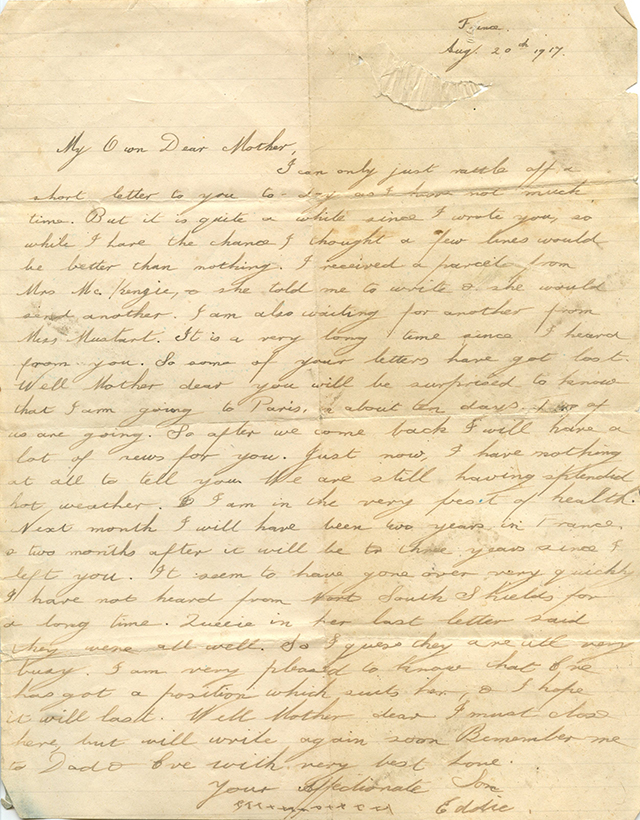 France.
Aug. 20th 1917.
My Own Dear Mother,
I can only just rattle off a
short letter to you to-day as I have not much
time. But it is quite a while since I wrote you, so
while I have the chance I thought a few lines would
be better than nothing. I received a parcel from
Mrs Mc.Kenzie, & she told me to write & she would
send another. I am also waiting for another from
Miss Mustart. It is a very long time since I heard
from you. So some of your letters have got lost.
Well Mother dear you will be surprised to know
that I am going to Paris, in about ten days. Two of
us are going. So after we come back I will have a
lot of news for you. Just now, I have nothing
at all to tell you. We are still having splendid
hot, weather. & I am in the very best of health.
Next month I will have been two years in France,
& two months after it will be three years since I
left you. It seem to have gone over very quickly
I have not heard from South Shields for
a long time. Queeie in her last letter said
they were all well. So I guess they are all very
busy. I am very pleased to know that Eve
has got a position which suits her, & I hope
it will last. Well Mother dear I must close
here, but will write again soon Remember me
to Dad & Eve with very best love.
Your Affectionate Son
Eddie.